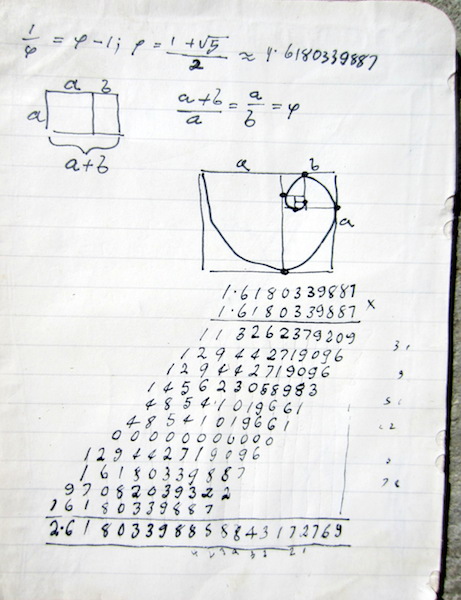 1/φ = φ-1; φ = (1+√5)/2 ≈ 1.6180339887
a b
a
a+b
(a+b)/a = a/b = φ
a b
a
1.6180339887
1.6180339887 ×
11 3262379209
129442719096
129442719096
145623058983
48541019661
48541019661
00000000000
129442719096
16180339887
97082039322
16180339887
2.61803398858843172769